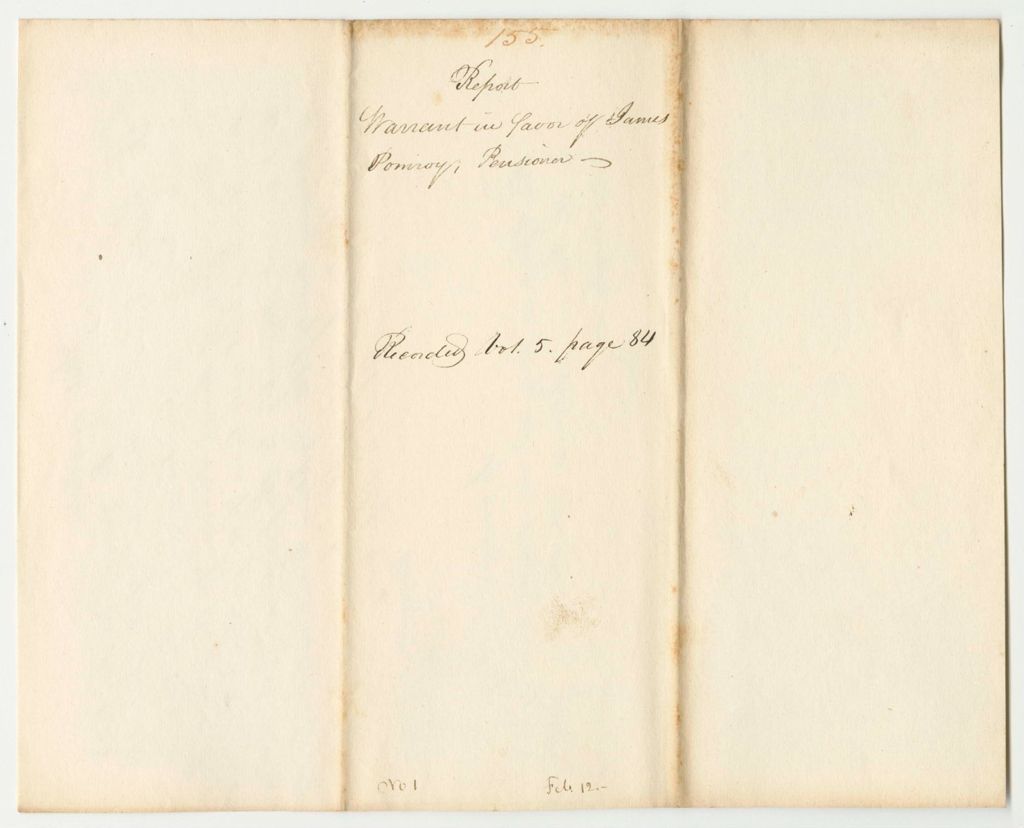 155.
Report
Warrant in favor of James
Pomroy, Pensioner —
Recorded Vol. 5. page 84
No 1
Feb. 12.-